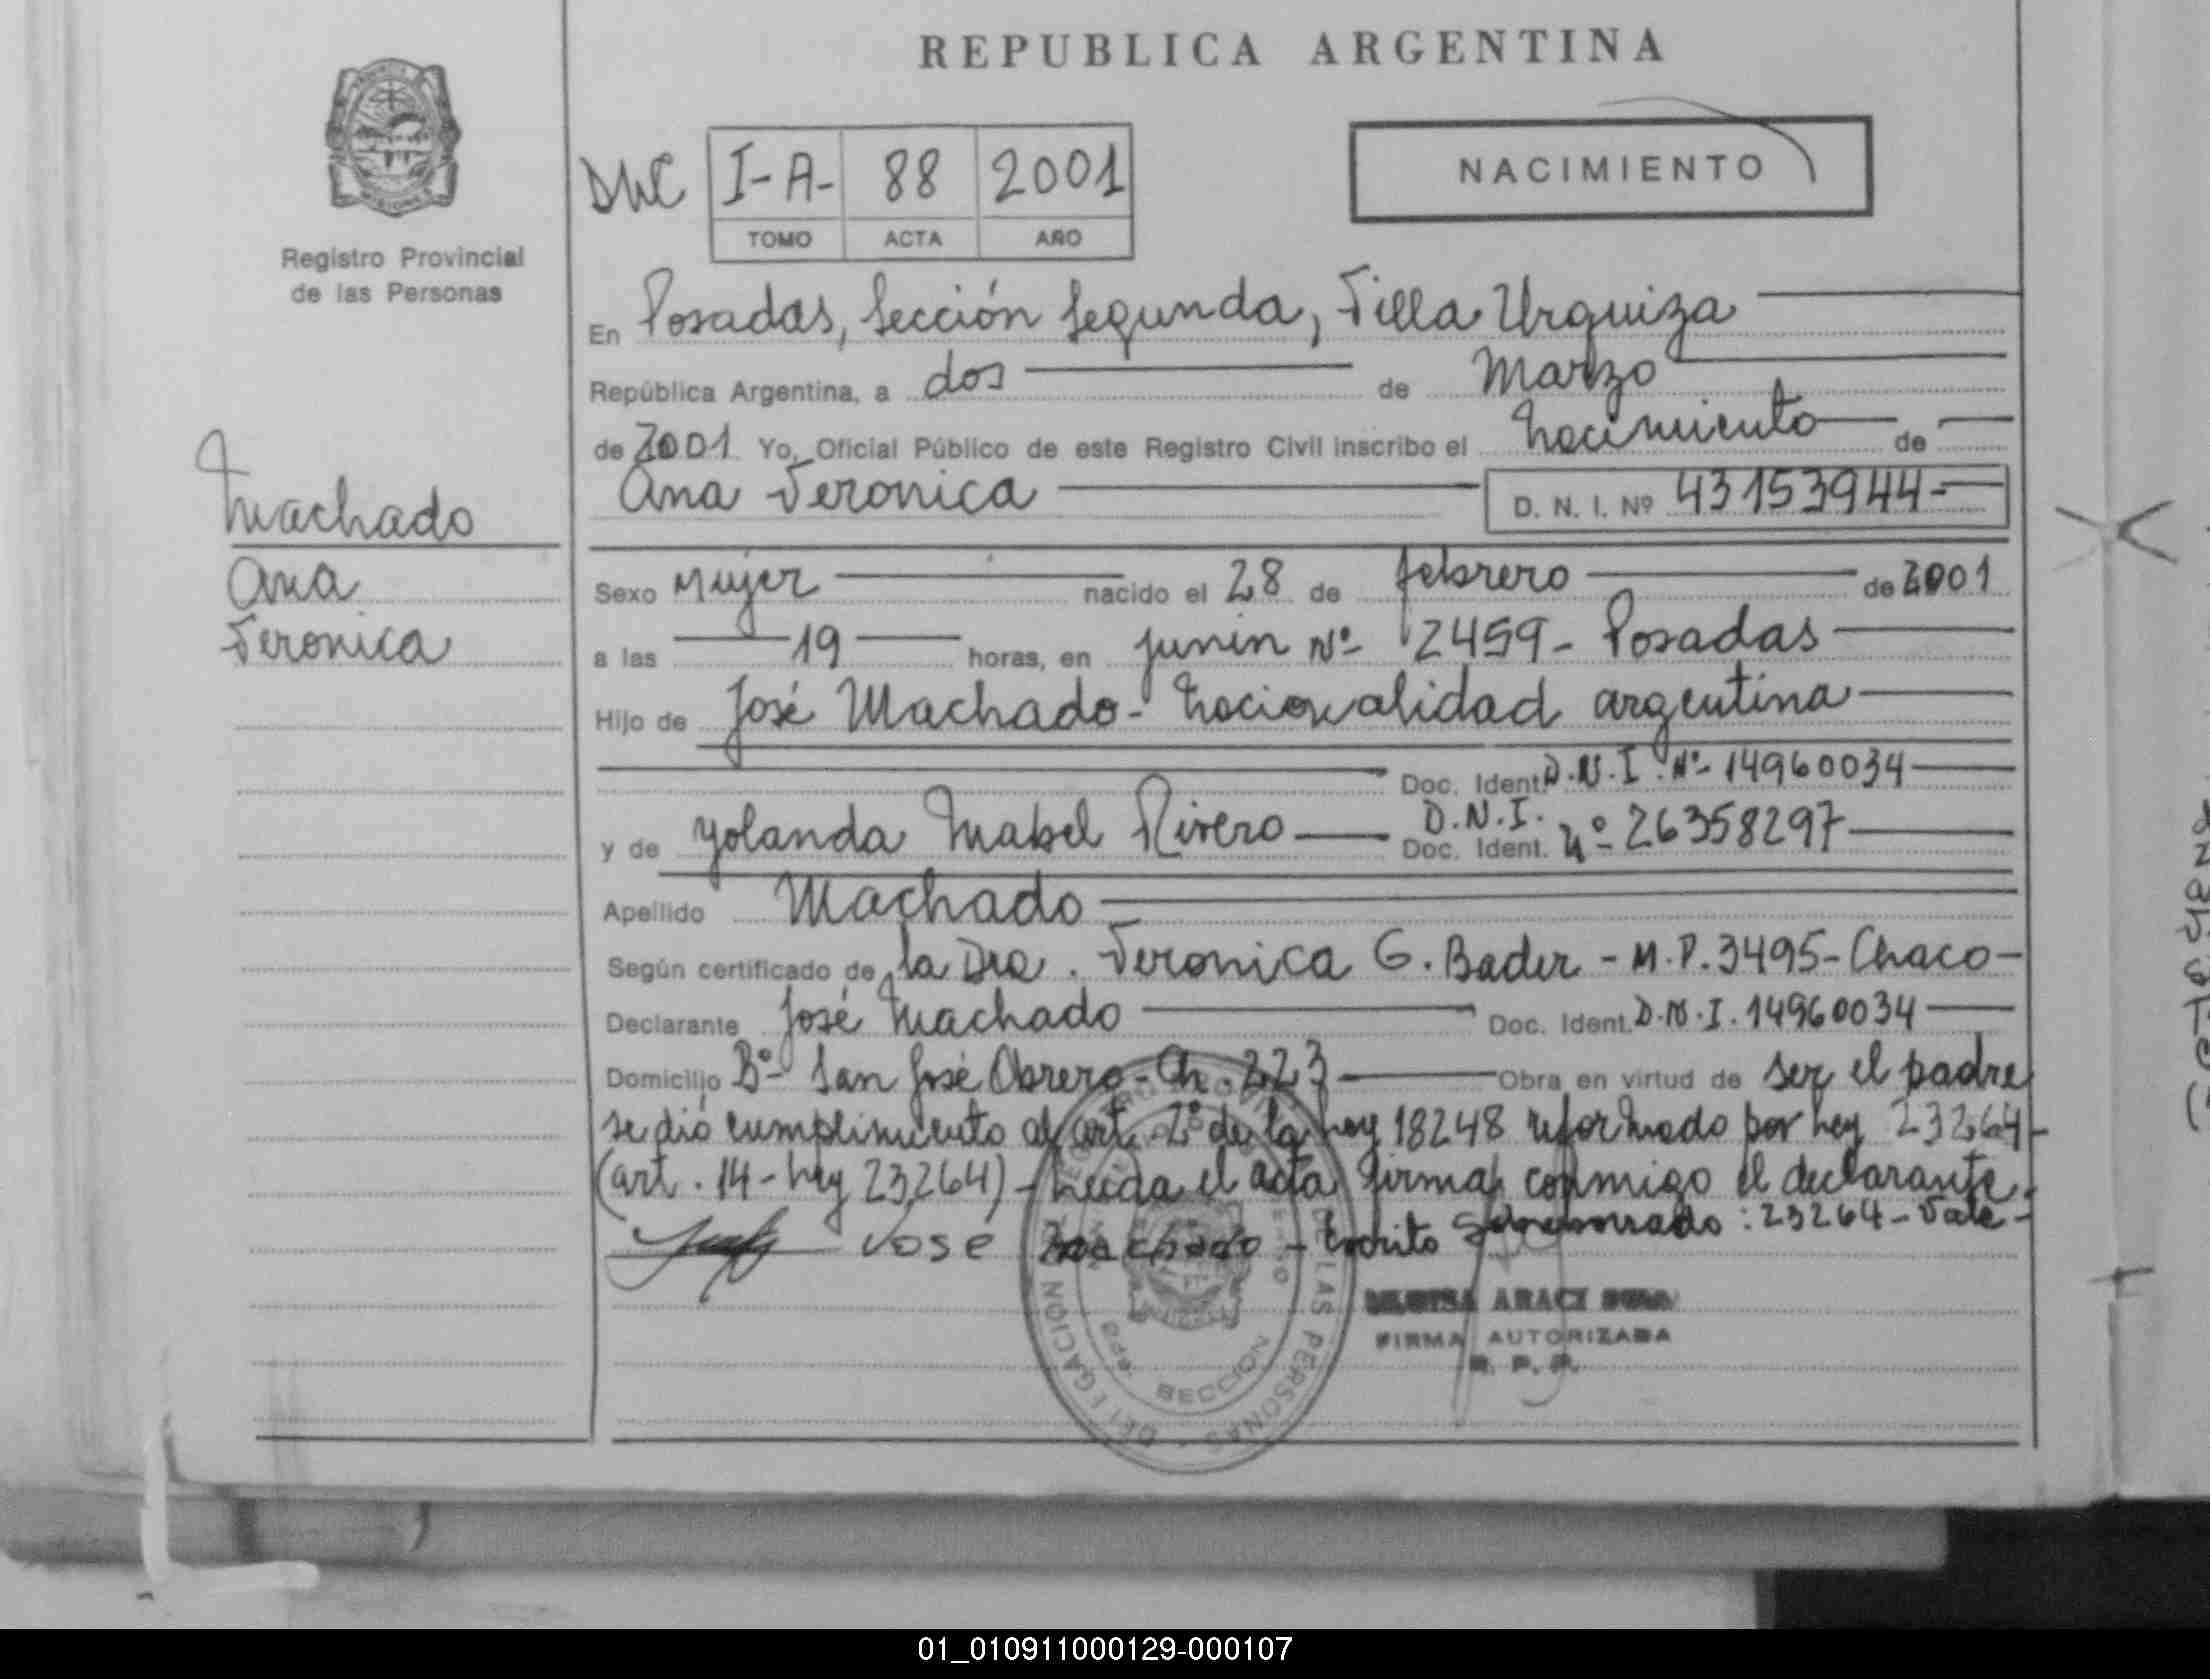 REPUBLICA ARGENTINA
NACIMIENTO
DUC I-A- 88 2001
TOMO ACTA AÑO
Registro Provincial
de las Personas
En Posadas, Sección Segunda, Villa Urquiza
República Argentina, a dos de Marzo
de 2001 Yo, Oficial Público de este Registro Civil inscribo el nacimiento de
Ana Veronica D. N. I. Nº 43153944-
Machado
Ana
Veronica
Sexo Mujer nacido el 28 de febrero de 2001
a las 19 horas, en Junin Nº 2459- Posadas
Hijo de José Machado- nacionalidad argentina
Doc. Ident. D.N.I. Nº 14960034
y de Yolanda Mabel Rivero D.N.I. Doc. Ident. Nº 26358297
Apellido Machado
Según certificado de la Dra. Veronica G. Bader - M.P. 3495- Chaco-
Declarante José Machado Doc. Ident. D.N.I. 14960034
Domicilio Bº San José Obrero- Ch. 223 Obra en virtud de ser el padre
se dió cumplimiento al art. 2º de la Ley 18248 reformado por Ley 23264-
(art. 14- Ley 23264)- Leida el acta firma conmigo el declarante.
José Machado - Escrito Sobreborrado: 23264- Vale-
ARACI
FIRMA AUTORIZADA
R. P. P.
DELEGACION REGISTRO PROVINCIAL DE LAS PERSONAS
SECCION
01_010911000129-000107